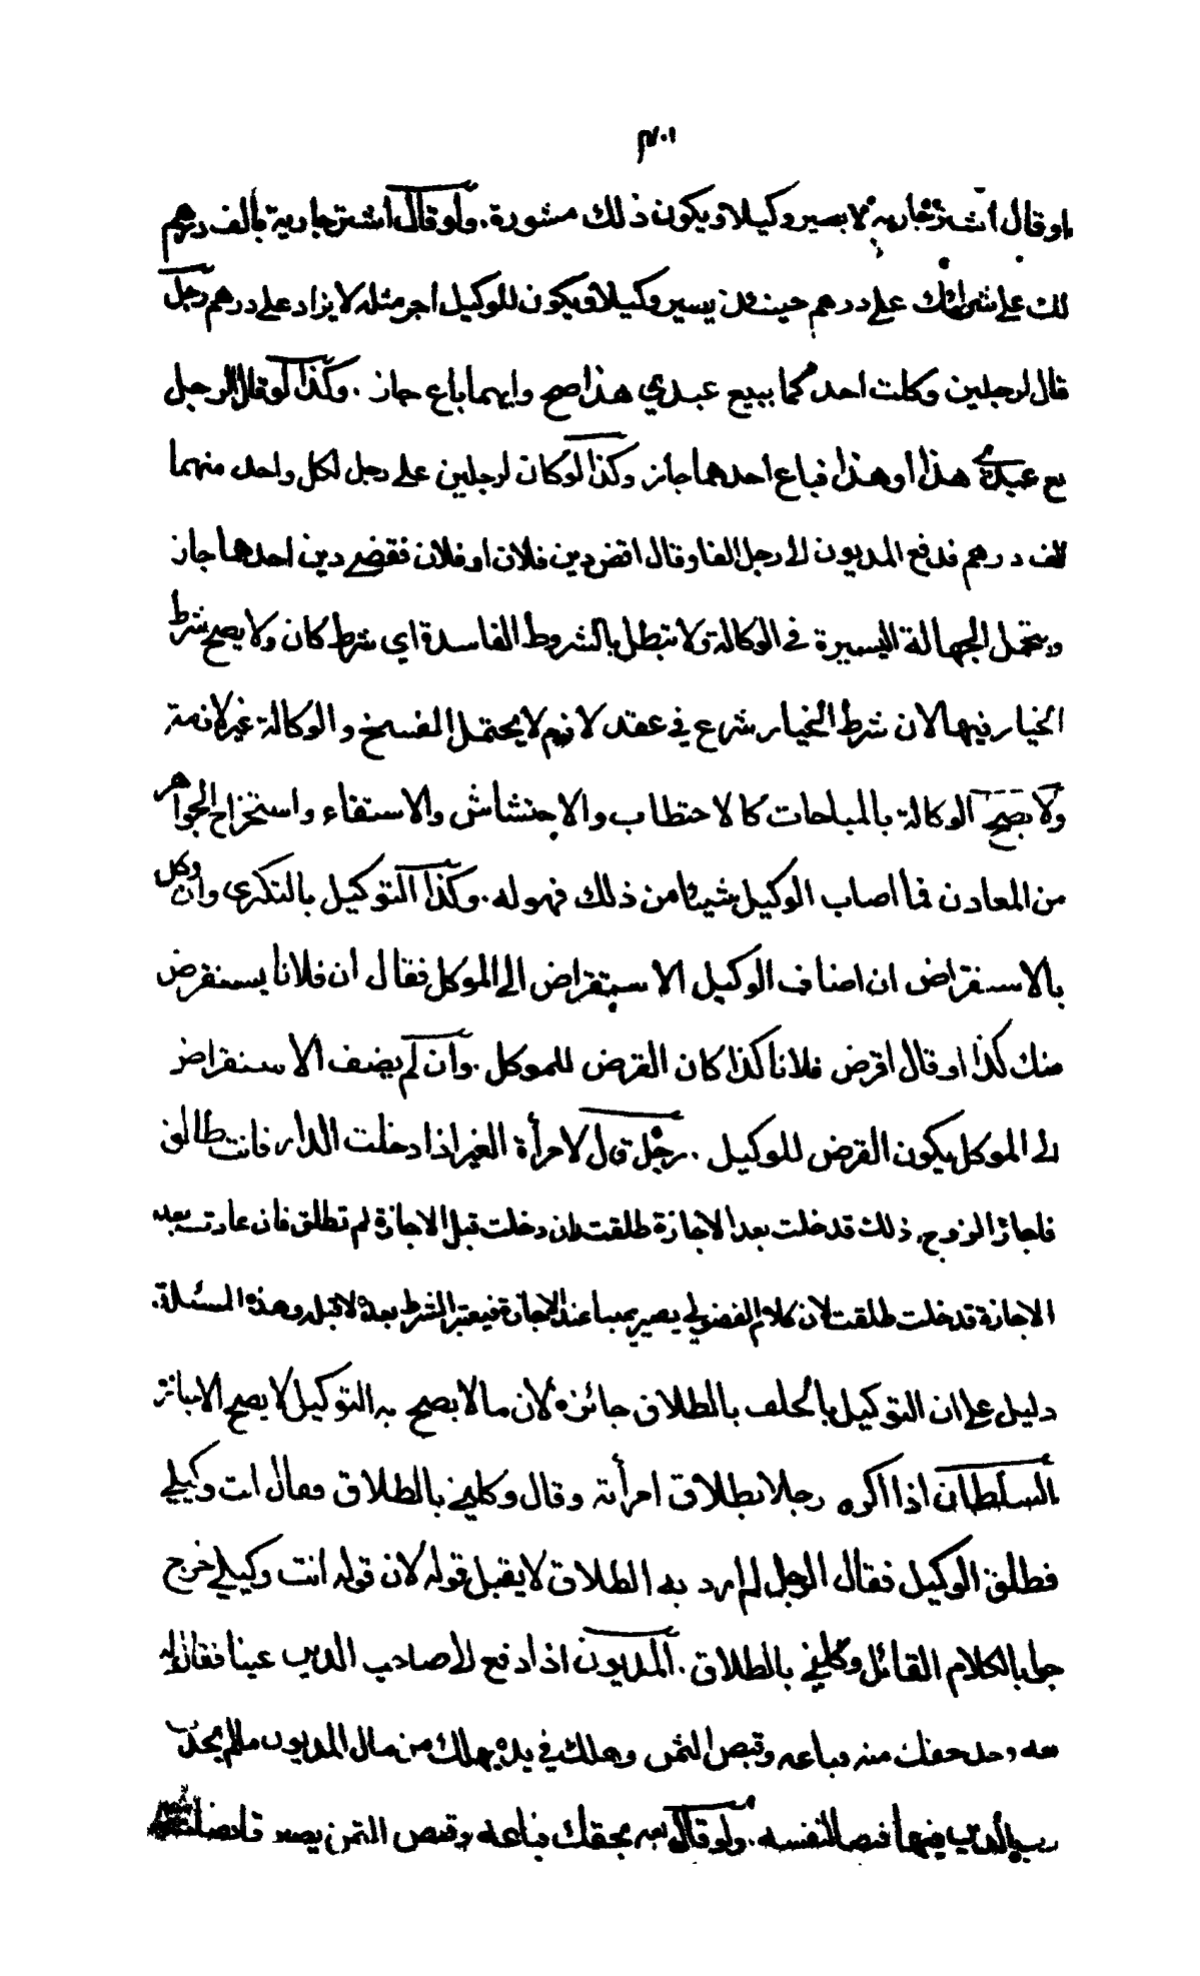 ٣٠١
او قال اشتر جارية لا يصير وكيلا ويكون ذلك مشورة. ولو قال اشتر جارية بالف درهم
لك على شرائك على درهم حينئذ يسير وكيلا ويكون للوكيل اجر مثله لا يزاد على درهم رجل
قال لرجلين وكلت احدكما ببيع عبدي هذا صح وايهما باع جاز. وكذا لو قال الرجل
بع عبدي هذا او هذا فباع احدهما جاز وكذا لو كان لرجلين على رجل لكل واحد منهما
الف درهم فدفع المديون الى رجل الفا وقال اقض دين فلان او فلان فقضى دين احدهما جاز
ويتحمل الجهالة اليسيرة في الوكالة ولا تبطل بالشروط الفاسدة اي شرط كان ولا يصح شرط
الخيار فيها لان شرط الخيار شرع في عقد لازم لا يحتمل الفسخ والوكالة غير لازمة
ولا يصح الوكالة بالمباحات كالاحتطاب والاحتشاش والاستقاء واستخراج الجواهر
من المعادن فما اصاب الوكيل شيئا من ذلك فهو له. وكذا التوكيل بالتكرى وان وكل
بالاستقراض ان اضاف الوكيل الاستقراض الى الموكل فقال ان فلانا يستقرض
منك كذا او قال اقرض فلانا كذا كان القرض للموكل. وان لم يضف الاستقراض
الى الموكل يكون القرض للوكيل. رجل قال لامرأة الغير اذا دخلت الدار فانت طالق
فاجاز الزوج ذلك قد خلت بعد الاجازة طلقت وان دخلت قبل الاجازة لم تطلق فان عادت بعد
الاجازة قد خلت طلقت لان كلام الفضولي يصير يمينا عند الاجازة فيعتبر الشرط بعده لا قبله وهذه المسئلة.
دليل على ان التوكيل بالحلف بالطلاق جائزه لان ما لا يصح به التوكيل لا يصح الاجازة
السلطان اذا اكره رجلا بطلاق امرأته وقال وكلني بالطلاق فقال انت وكيلي
فطلق الوكيل فقال الرجل لم ارد به الطلاق لا يقبل قوله لان قوله انت وكيلي خرج
جوابا لكلام القائل وكلني بالطلاق. المديون اذا دفع الى صاحب الدين عينا فقال له
بعه وخذ حقك منه فباعه وقبض الثمن وهلك في يده يهلك من مال المديون ما لم يحدث
رب الدين فيها قبضا لنفسه. ولو قال بعه بحقك فباعه وقبض الثمن يصير قابضا